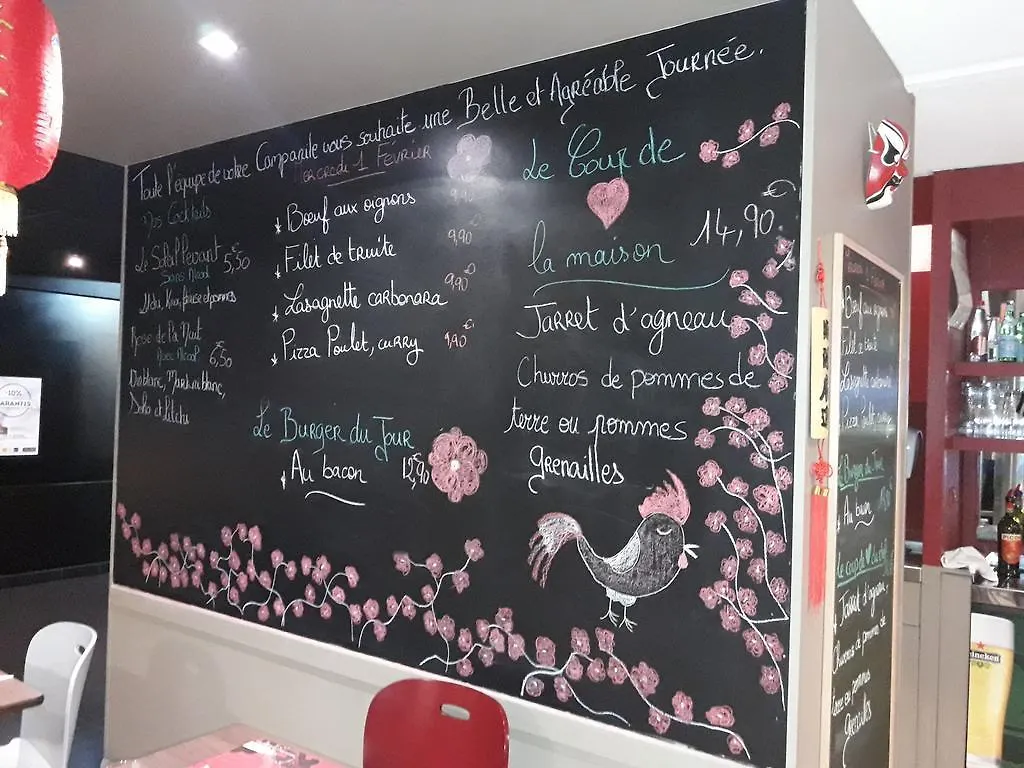 Toute l'équipe de votre Campanile vous souhaite une Belle et Agréable Journée.
Mercredi 1 Février
Nos Cocktails
Le Soleil levant 5,50€
Sans Alcool
Rose de Pa Nuit
Avec Alcool 6,50€
Soho et Litchi
Bœuf aux oignons 9,90€
Filet de truite 9,90€
Lasagnette carbonara 9,90€
Pizza Poulet, curry 9,90€
Le Burger du Jour
Au bacon 12,90€
Le Coup de
la maison 14,90€
Jarret d'agneau
Churros de pommes de
terre ou pommes
grenailles
10%
Bœuf aux oignons
Filet de truite
Lasagnette carbonara
Pizza Poulet curry
Le Burger du Jour
Au bacon
Le coup de
Jarret d'agneau
Churros de pommes de
terre ou pommes
Grenailles
Heineken